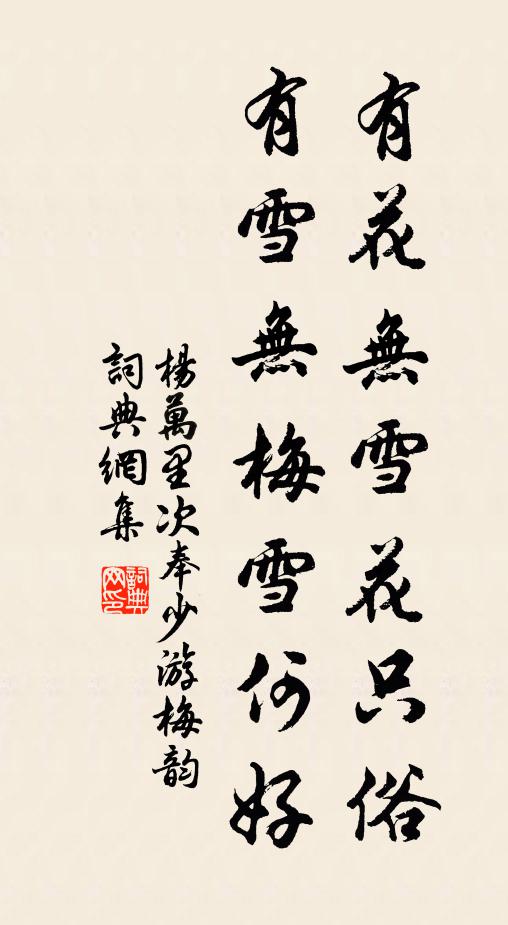 有花無雪花只俗
有雪無梅雪何好
楊萬里次奉少游梅韵
詞典網集
詞典
网印